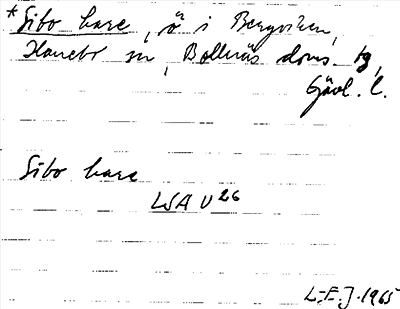 *Sibo hare, ö i Bergviken,
Hanebo sn, Bollnäs doms. tg,
Gävl. l.
Sibo hare
LSA U26
L.E.J. 1965